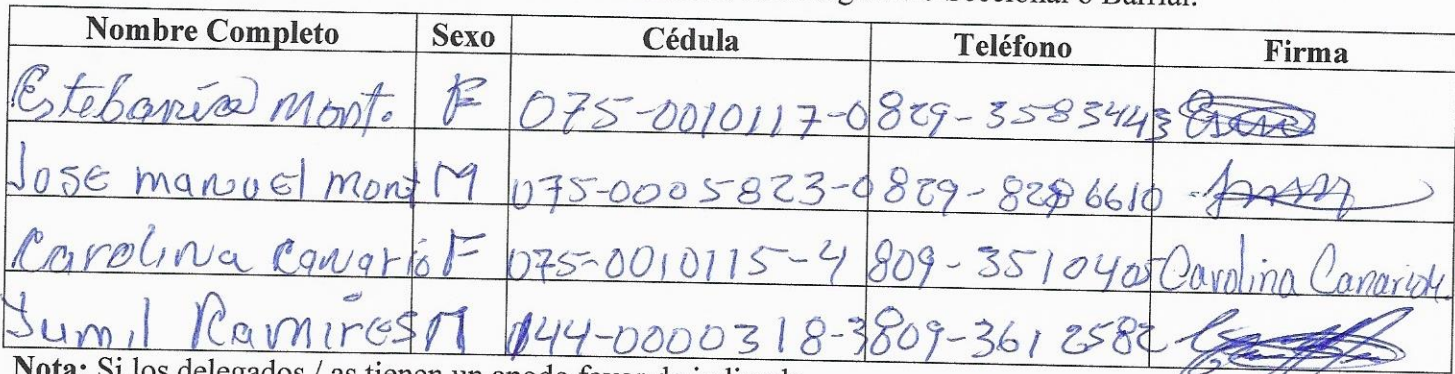 Seccional o Barrial.
Nombre Completo Sexo Cédula Teléfono Firma
Estebanía Mont. F 075-0010117-0 829-3583443
Jose manuel mont M 075-0005823-0 829-8286610
Carolina Canario F 075-0010115-4 809-3510405 Carolina Canario
Jumil Ramires M 044-0000318-3 809-3612582
Nota: Si los delegados / as tienen un apodo favor de